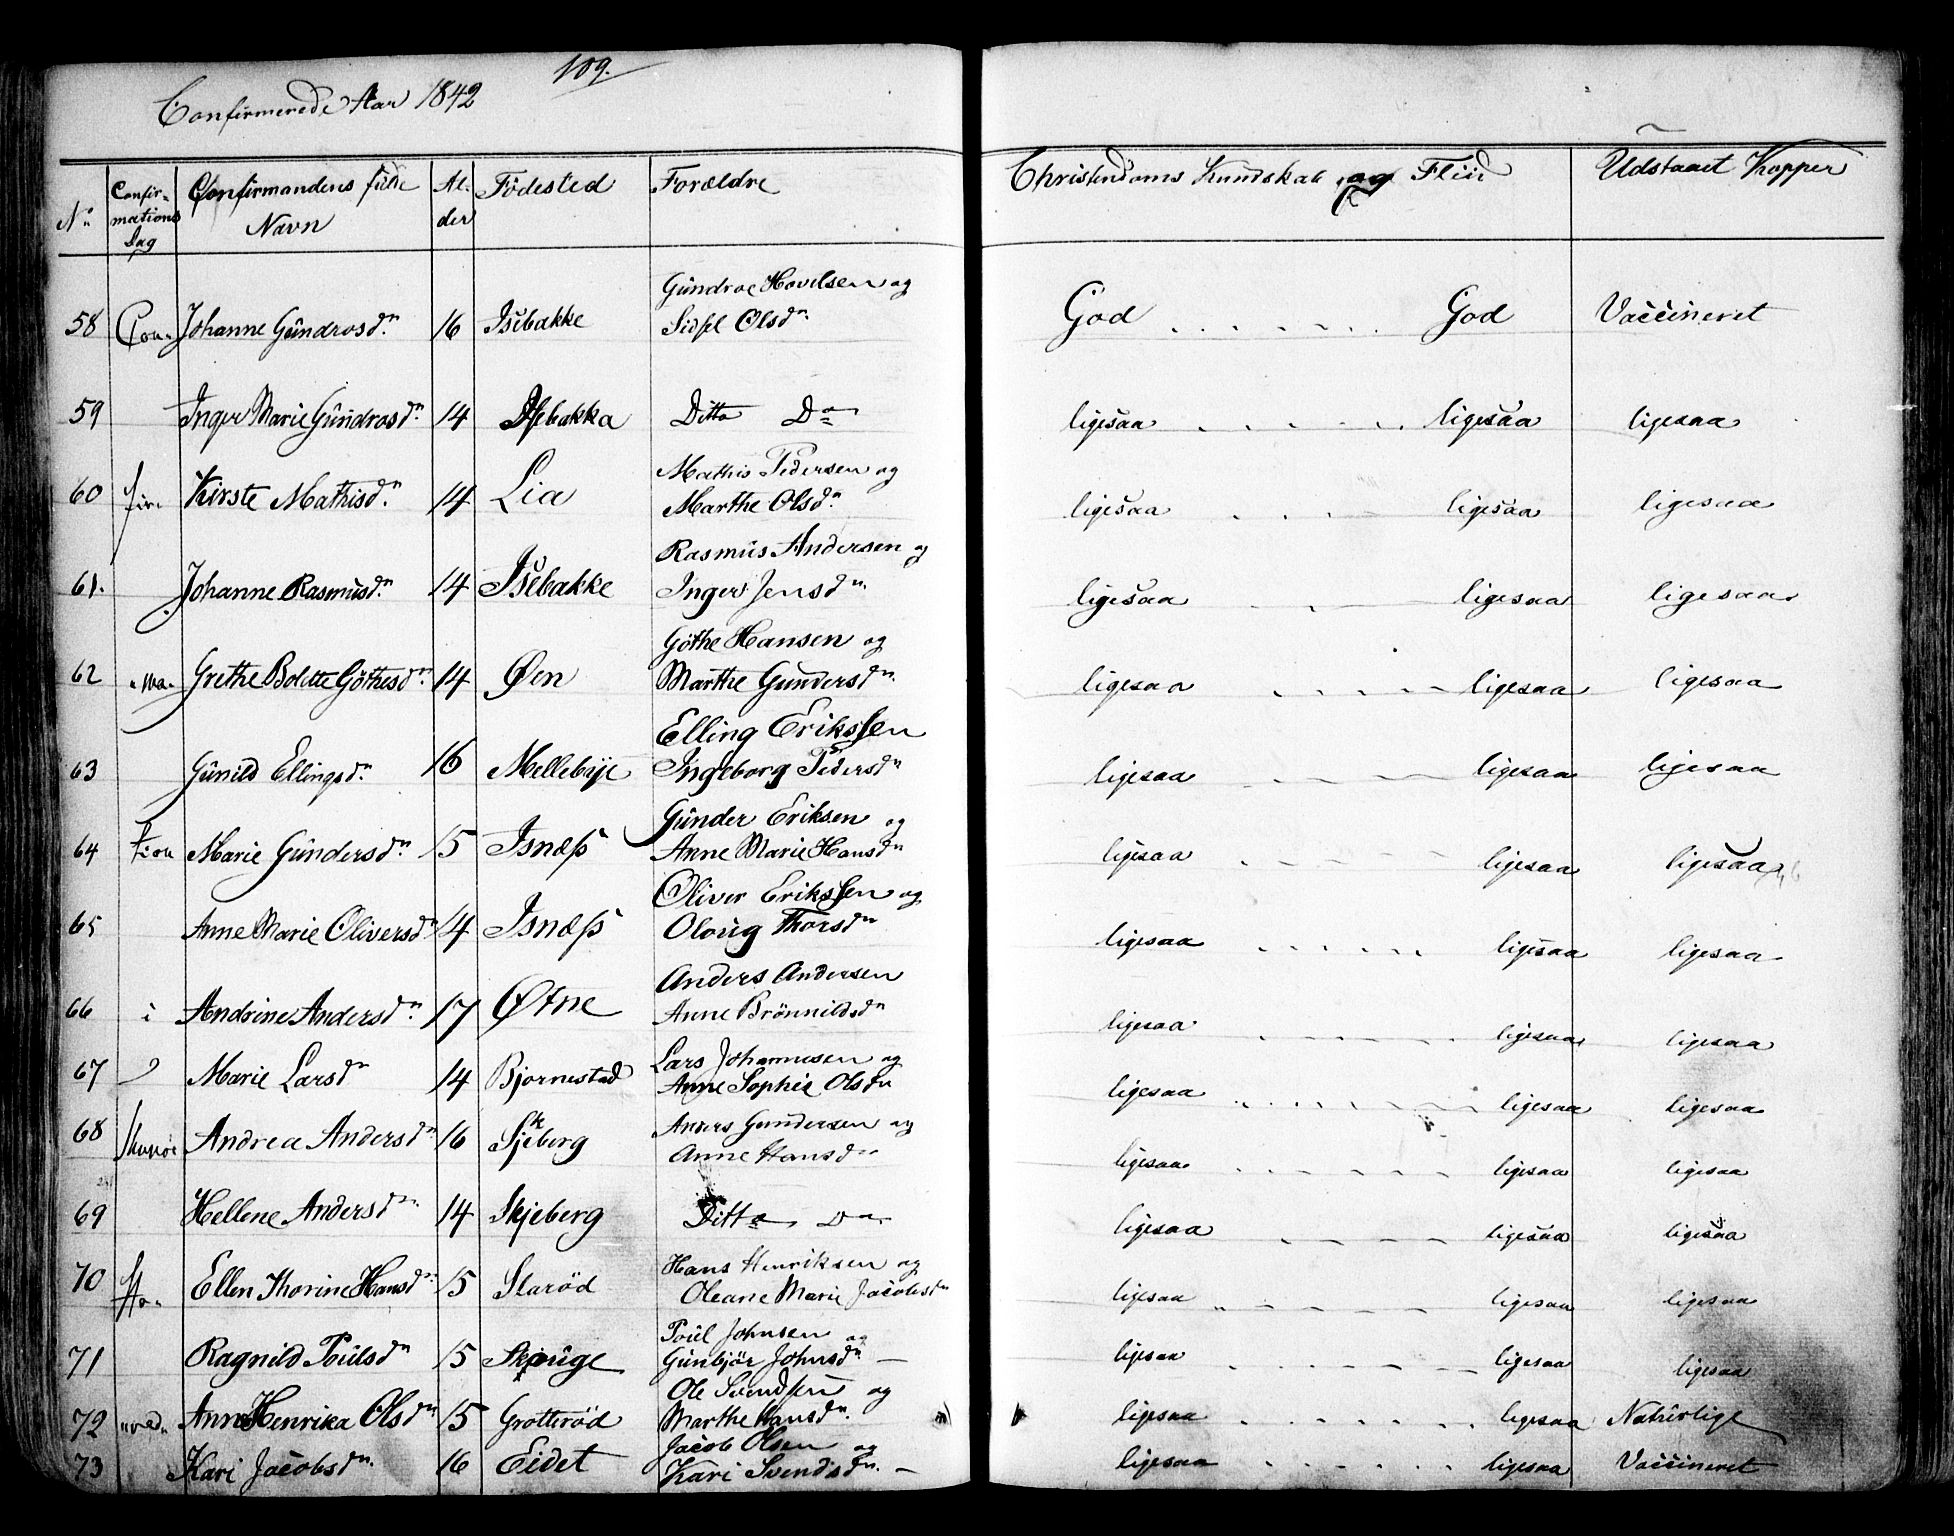 109.
Confirmerede Aar 1842
No Confirmations Dag Confirmandens fulde Navn Alder Födested Forældre Christendoms Kundskab og Fliid Udstaaet Kopper
58 Con- Johanne Gundrosdn. 16 Isebakke Gundroe Hovelsen og Sidsel Olsdn. God God Vaccineret
59 Inger Marie Gundrosdn 14 Isebakka Ditto Do ligesaa ligesaa ligesaa
60 fir- Kirste Mathisdn. 14 Lia Mathis Pedersen og Marthe Olsdn ligesaa ligesaa ligesaa
61. Johanne Rasmusdn. 14 Isebakke Rasmus Andersen og Inger Jensdn. ligesaa ligesaa ligesaa
62 -ma- Grethe Bolette Göthesdn. 14 Øen Göthe Hansen og Marthe Gundersdn. ligesaa ligesaa ligesaa
63 Gunild Ellingsdn. 16 Mellebye Elling Erikssen Ingeborg Pedersdn ligesaa ligesaa ligesaa
64 tion Marie Gundersdn 15 Isnæss Gunder Eriksen og Anne Marie Hansdn ligesaa ligesaa ligesaa
65 Anne Marie Oliversdn 14 Isnæss Oliver Erikssen og Oloug Thorsdn ligesaa ligesaa ligesaa
66 i Andrine Andersdn. 17 Øtne Anders Andersen Anne Brönnildsdn ligesaa ligesaa ligesaa
67 Marie Larsdn 14 Bjornestad Lars Johannesen og Anne Sophie Olsdn ligesaa ligesaa ligesaa
68 Andrea Andersdn 16 Skjeberg Anders Gundersen og Anne Hansdn ligesaa ligesaa ligesaa
69 Hellene Andersdn. 14 Skjeberg Ditto Do ligesaa ligesaa ligesaa
70 Ellen Thorine Hansdn. 15 Staröd Hans Henriksen og Oleane Marie Jacobsdn ligesaa ligesaa ligesaa
71 Ragnild Poulsdn 15 Skouge Poul Johnsen og Gunbjör Johnsdn ligesaa ligesaa ligesaa
72 Anne Henrika Olsdn 15 Grotteröd Ole Svendsen og Marthe Hansdn. ligesaa ligesaa Naturlige
73 Kari Jacobsdn. 16 Eidet Jacob Olsen og Kari Svendsdn. ligesaa ligesaa Vaccineret